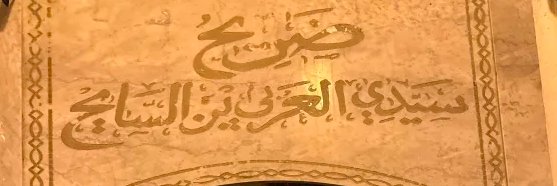 ضريح
سيدي العربي بن السايح